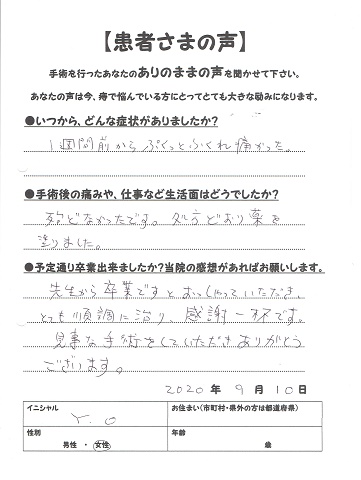 【患者さまの声】
手術を行ったあなたのありのままの声を聞かせて下さい。
あなたの声は今、痔で悩んでいる方にとってとても大きな励みになります。
●いつから、どんな症状がありましたか?
1週間前からぷくっとふくれ痛かった。
●手術後の痛みや、仕事など生活面はどうでしたか?
殆どなかったです。処方どおり薬を
塗りました。
●予定通り卒業出来ましたか?当院の感想があればお願いします。
先生から卒業ですとおっしゃっていただき、
とても順調に治り、感謝一杯です。
見事な手術をしていただきありがとう
ございます。
2020年 9月 10日
イニシャル
Y.O
お住まい(市町村・県外の方は都道府県)
性別
男性 ・ 女性
年齢
歳